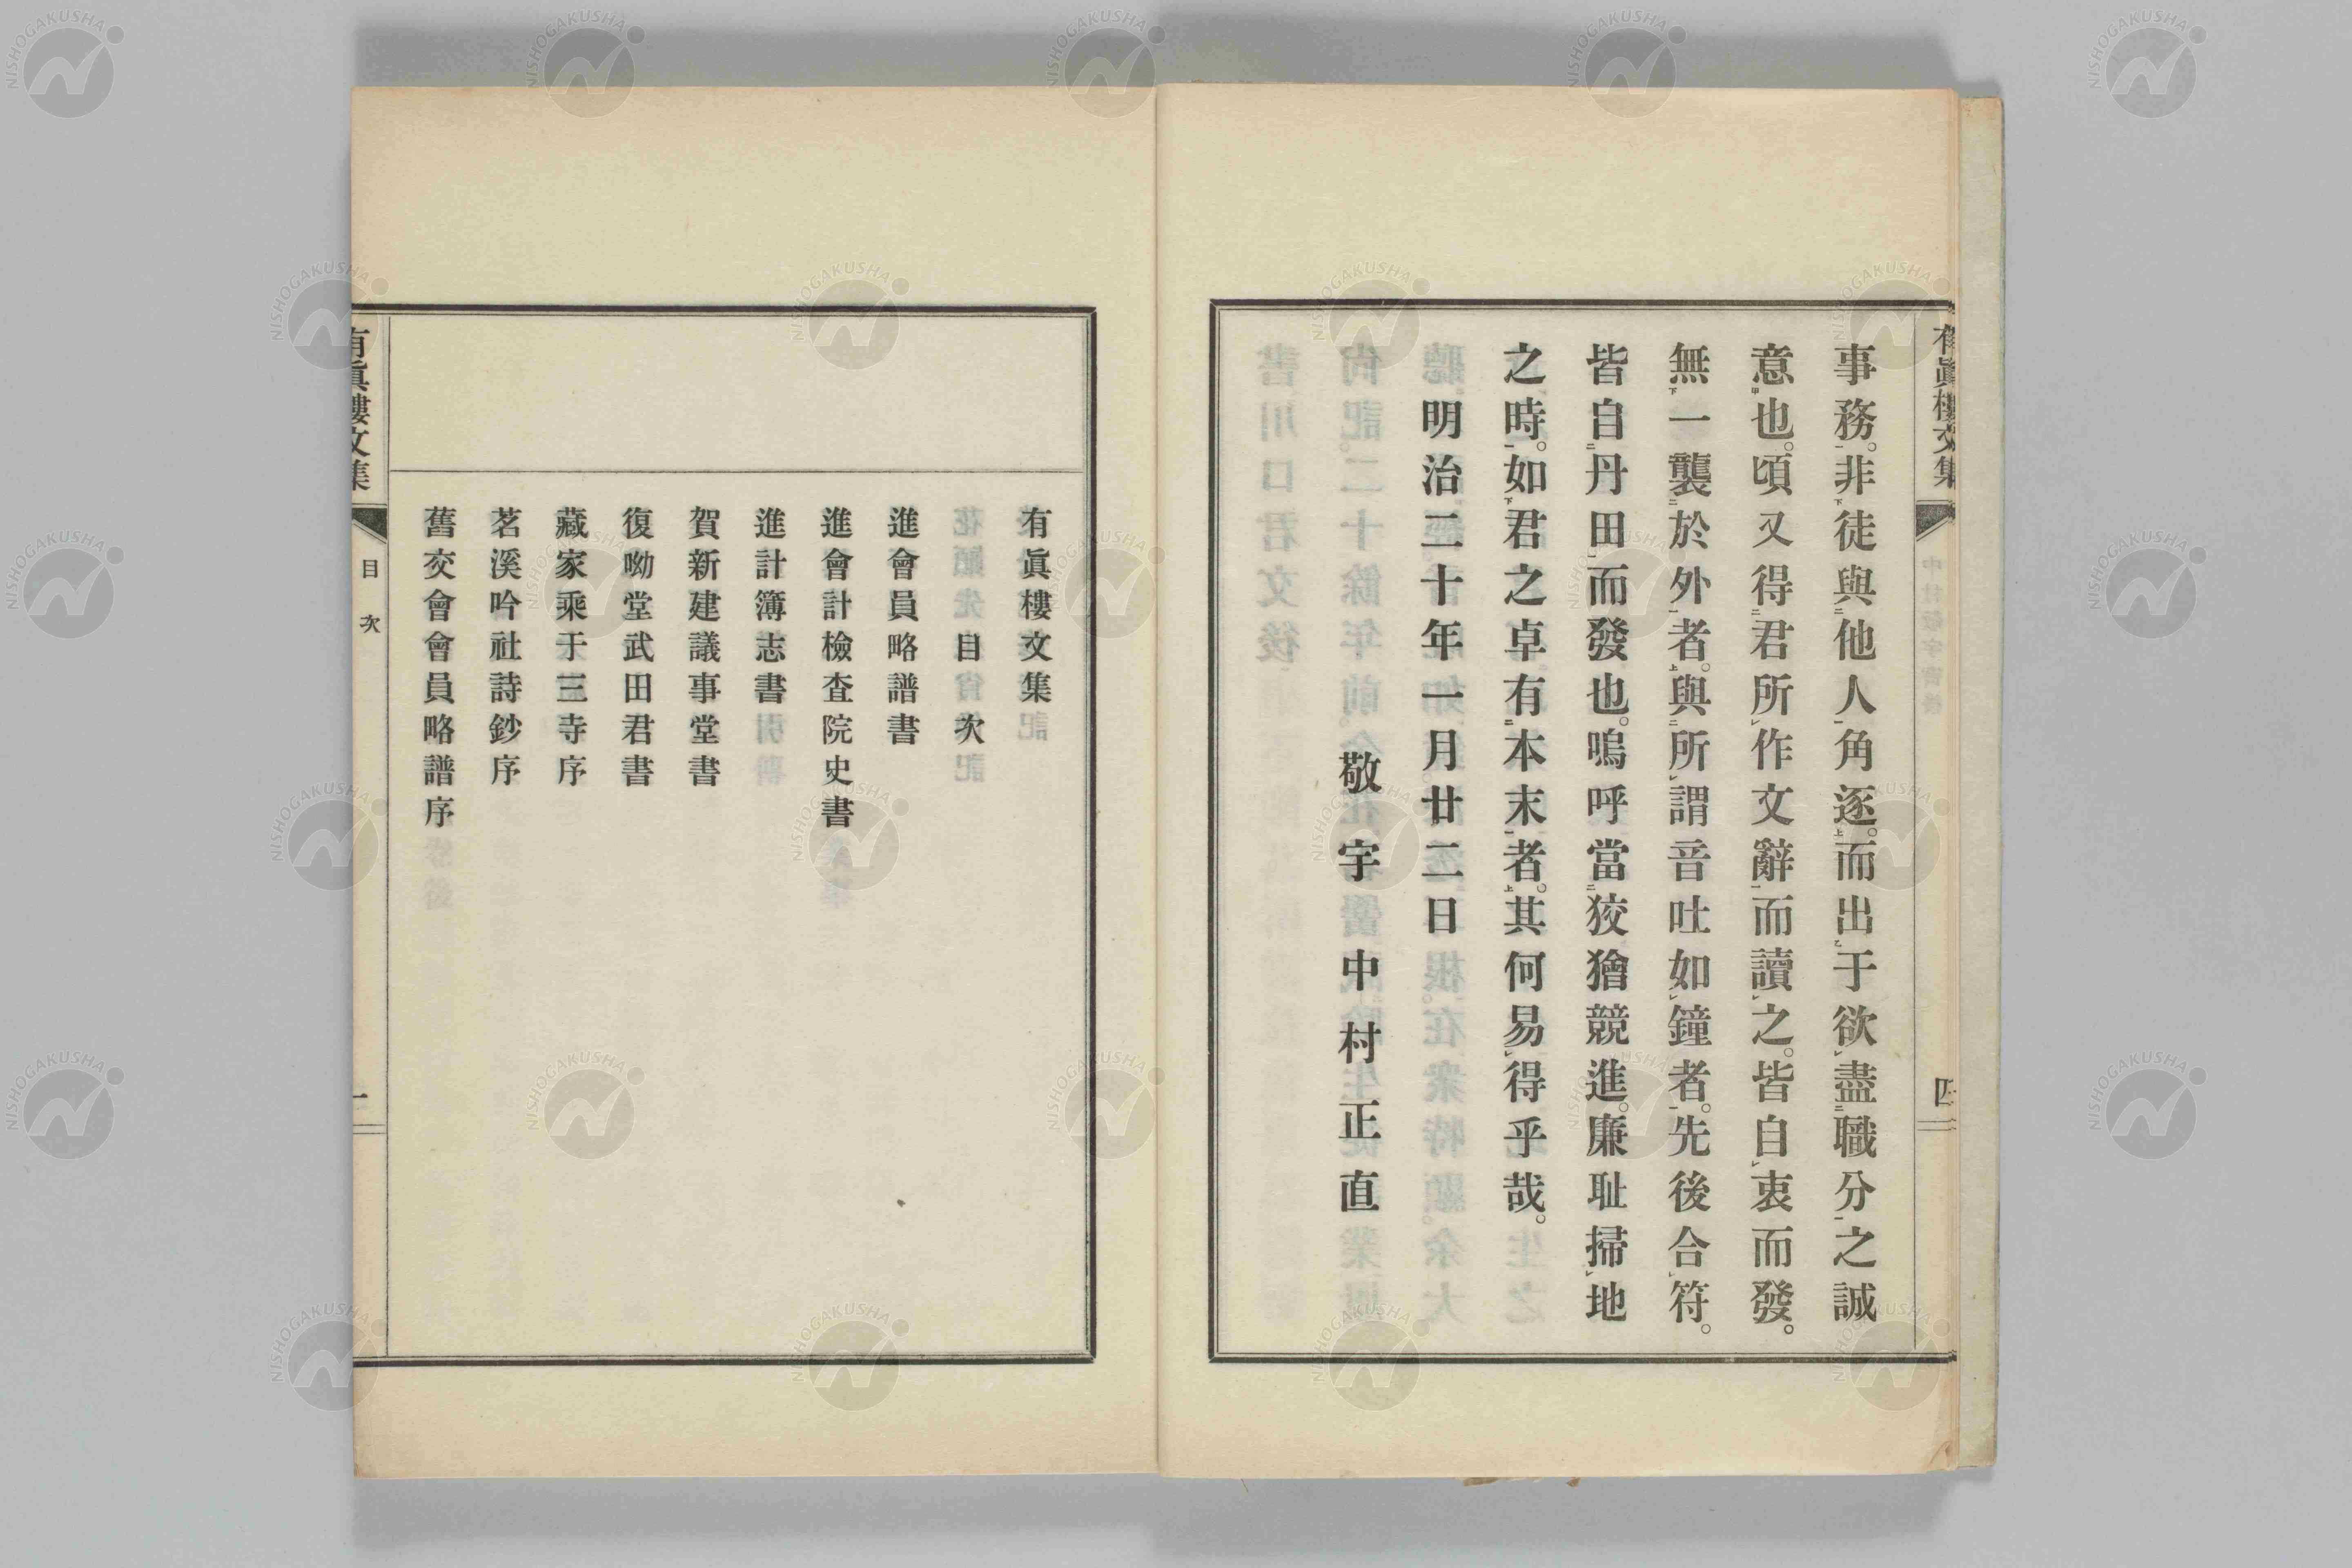 有眞樓文集
四
事務。非徒與他人角逐。而出于欲盡職分之誠
意也。頃又得君所作文辭而讀之。皆自衷而發。
無一襲於外者。與所謂音吐如鐘者。先後合符。
皆自丹田而發也。嗚呼當狡獪競進。廉耻掃地
之時。如君之卓有本末者。其何易得乎哉。
明治二十年一月廿二日
敬宇中村正直
有眞樓文集
目次
進會員略譜書
進會計檢查院史書
進計簿志書
賀新建議事堂書
復呦堂武田君書
藏家乘于三寺序
茗溪吟社詩鈔序
舊交會會員略譜序
有眞樓文集
目次
一
NISHOGAKUSHA